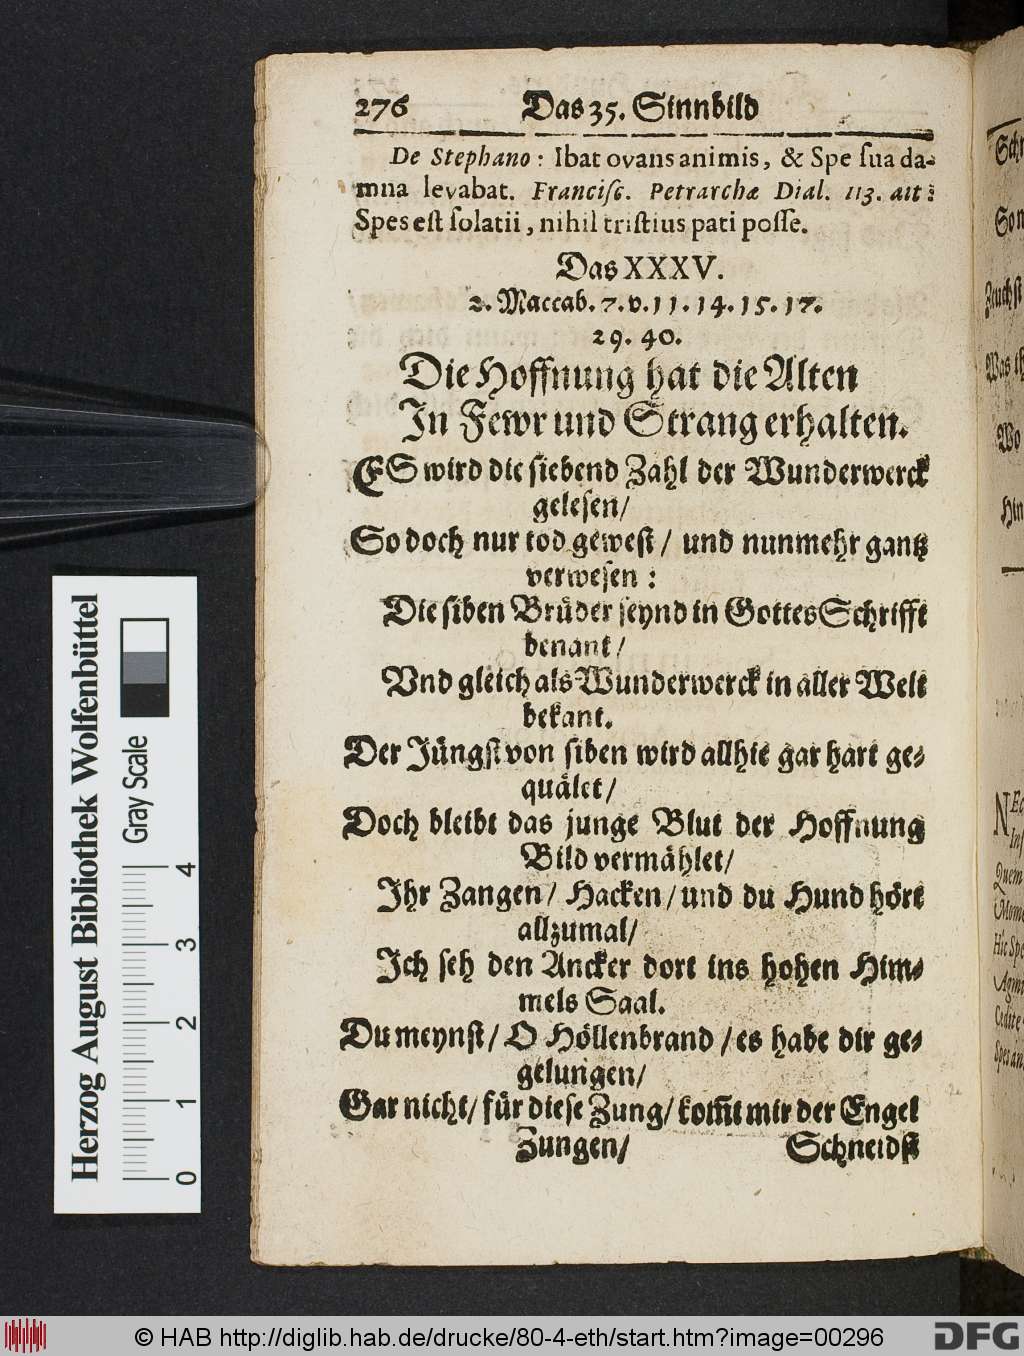 276 Das 35. Sinnbild
De Stephano: Ibat ovans animis, & Spe ſua da-
mna levabat. Franciſc. Petrarchæ Dial. 113. ait:
Spes eſt ſolatii, nihil triſtius pati poſſe.
Das XXXV.
2. Maccab. 7. v. 11. 14. 15. 17.
29. 40.
Die Hoffnung hat die Alten
In Fewr und Strang erhalten.
ES wird die ſiebend Zahl der Wunderwerck
geleſen/
So doch nur tod geweſt / und nunmehr gantz
verweſen:
Die ſiben Brüder ſeynd in Gottes Schrifft
benant/
Vnd gleich als Wunderwerck in aller Welt
bekant.
Der Jüngſt von ſiben wird allhie gar hart ge-
quälet/
Doch bleibt das junge Blut der Hoffnung
Bild vermählet/
Ihr Zangen/ Hacken/ und du Hund hört
allzumal/
Ich ſeh den Ancker dort ins hohen Him-
mels Saal.
Du meynſt/ O Höllenbrand / es habe dir ge-
gelungen/
Gar nicht/ für dieſe Zung/ kom̃t mir der Engel
Zungen/ Schneidſt
Herzog August Bibliothek Wolfenbüttel
Gray Scale
0 1 2 3 4
© HAB http://diglib.hab.de/drucke/80-4-eth/start.htm?image=00296
DFG